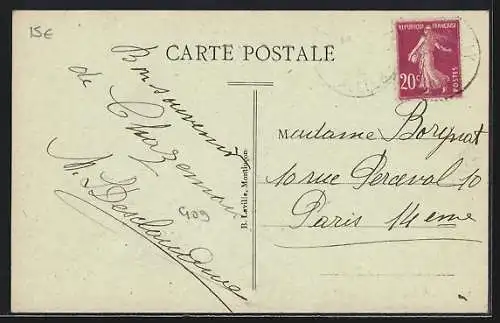 15€
CARTE POSTALE
REPUBLIQUE FRANÇAISE
20c
POSTES
Bon souvenir
de Chazemais
409
R. Laville, Montluçon
Madame
10 rue Perceval 10
Paris 14eme